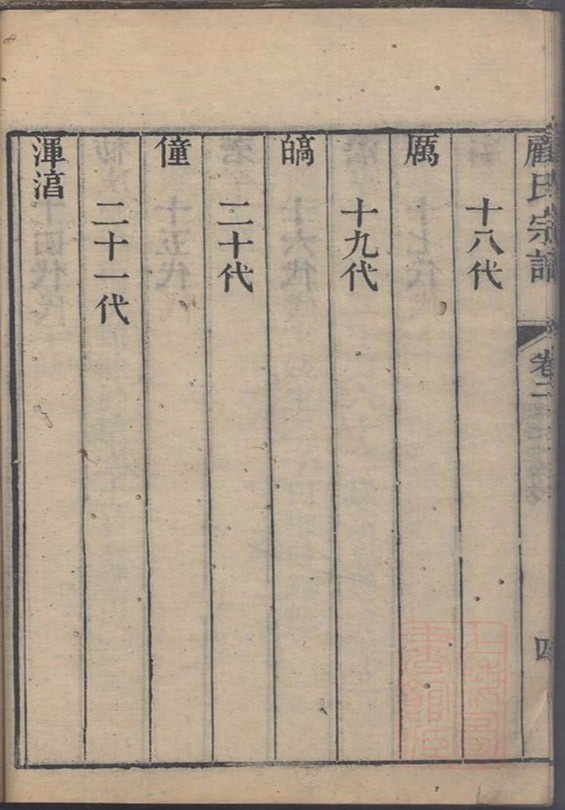 顧氏宗譜
卷二
四
十八代
厲
十九代
皜
二十代
僮
二十一代
渾湻